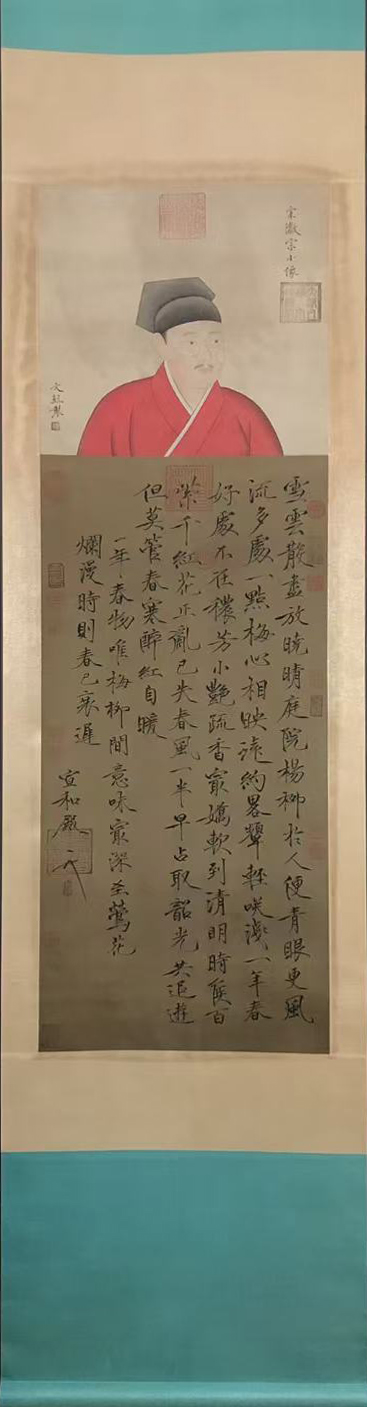 宋徽宗小像
雪雲散盡放曉晴庭院楊柳於人便青眼更風
流多處一點梅心相映遠約畧顰輕咲淺一年春
好處不在穠芳小艷疏香最嬌軟到清明時候百
紫千紅花正亂已失春風一半早占取韶光共追遊
但莫管春寒醉紅自暖
一年春物唯梅柳間意味最深至鶯花
爛漫時則春已衰遲
宣和殿